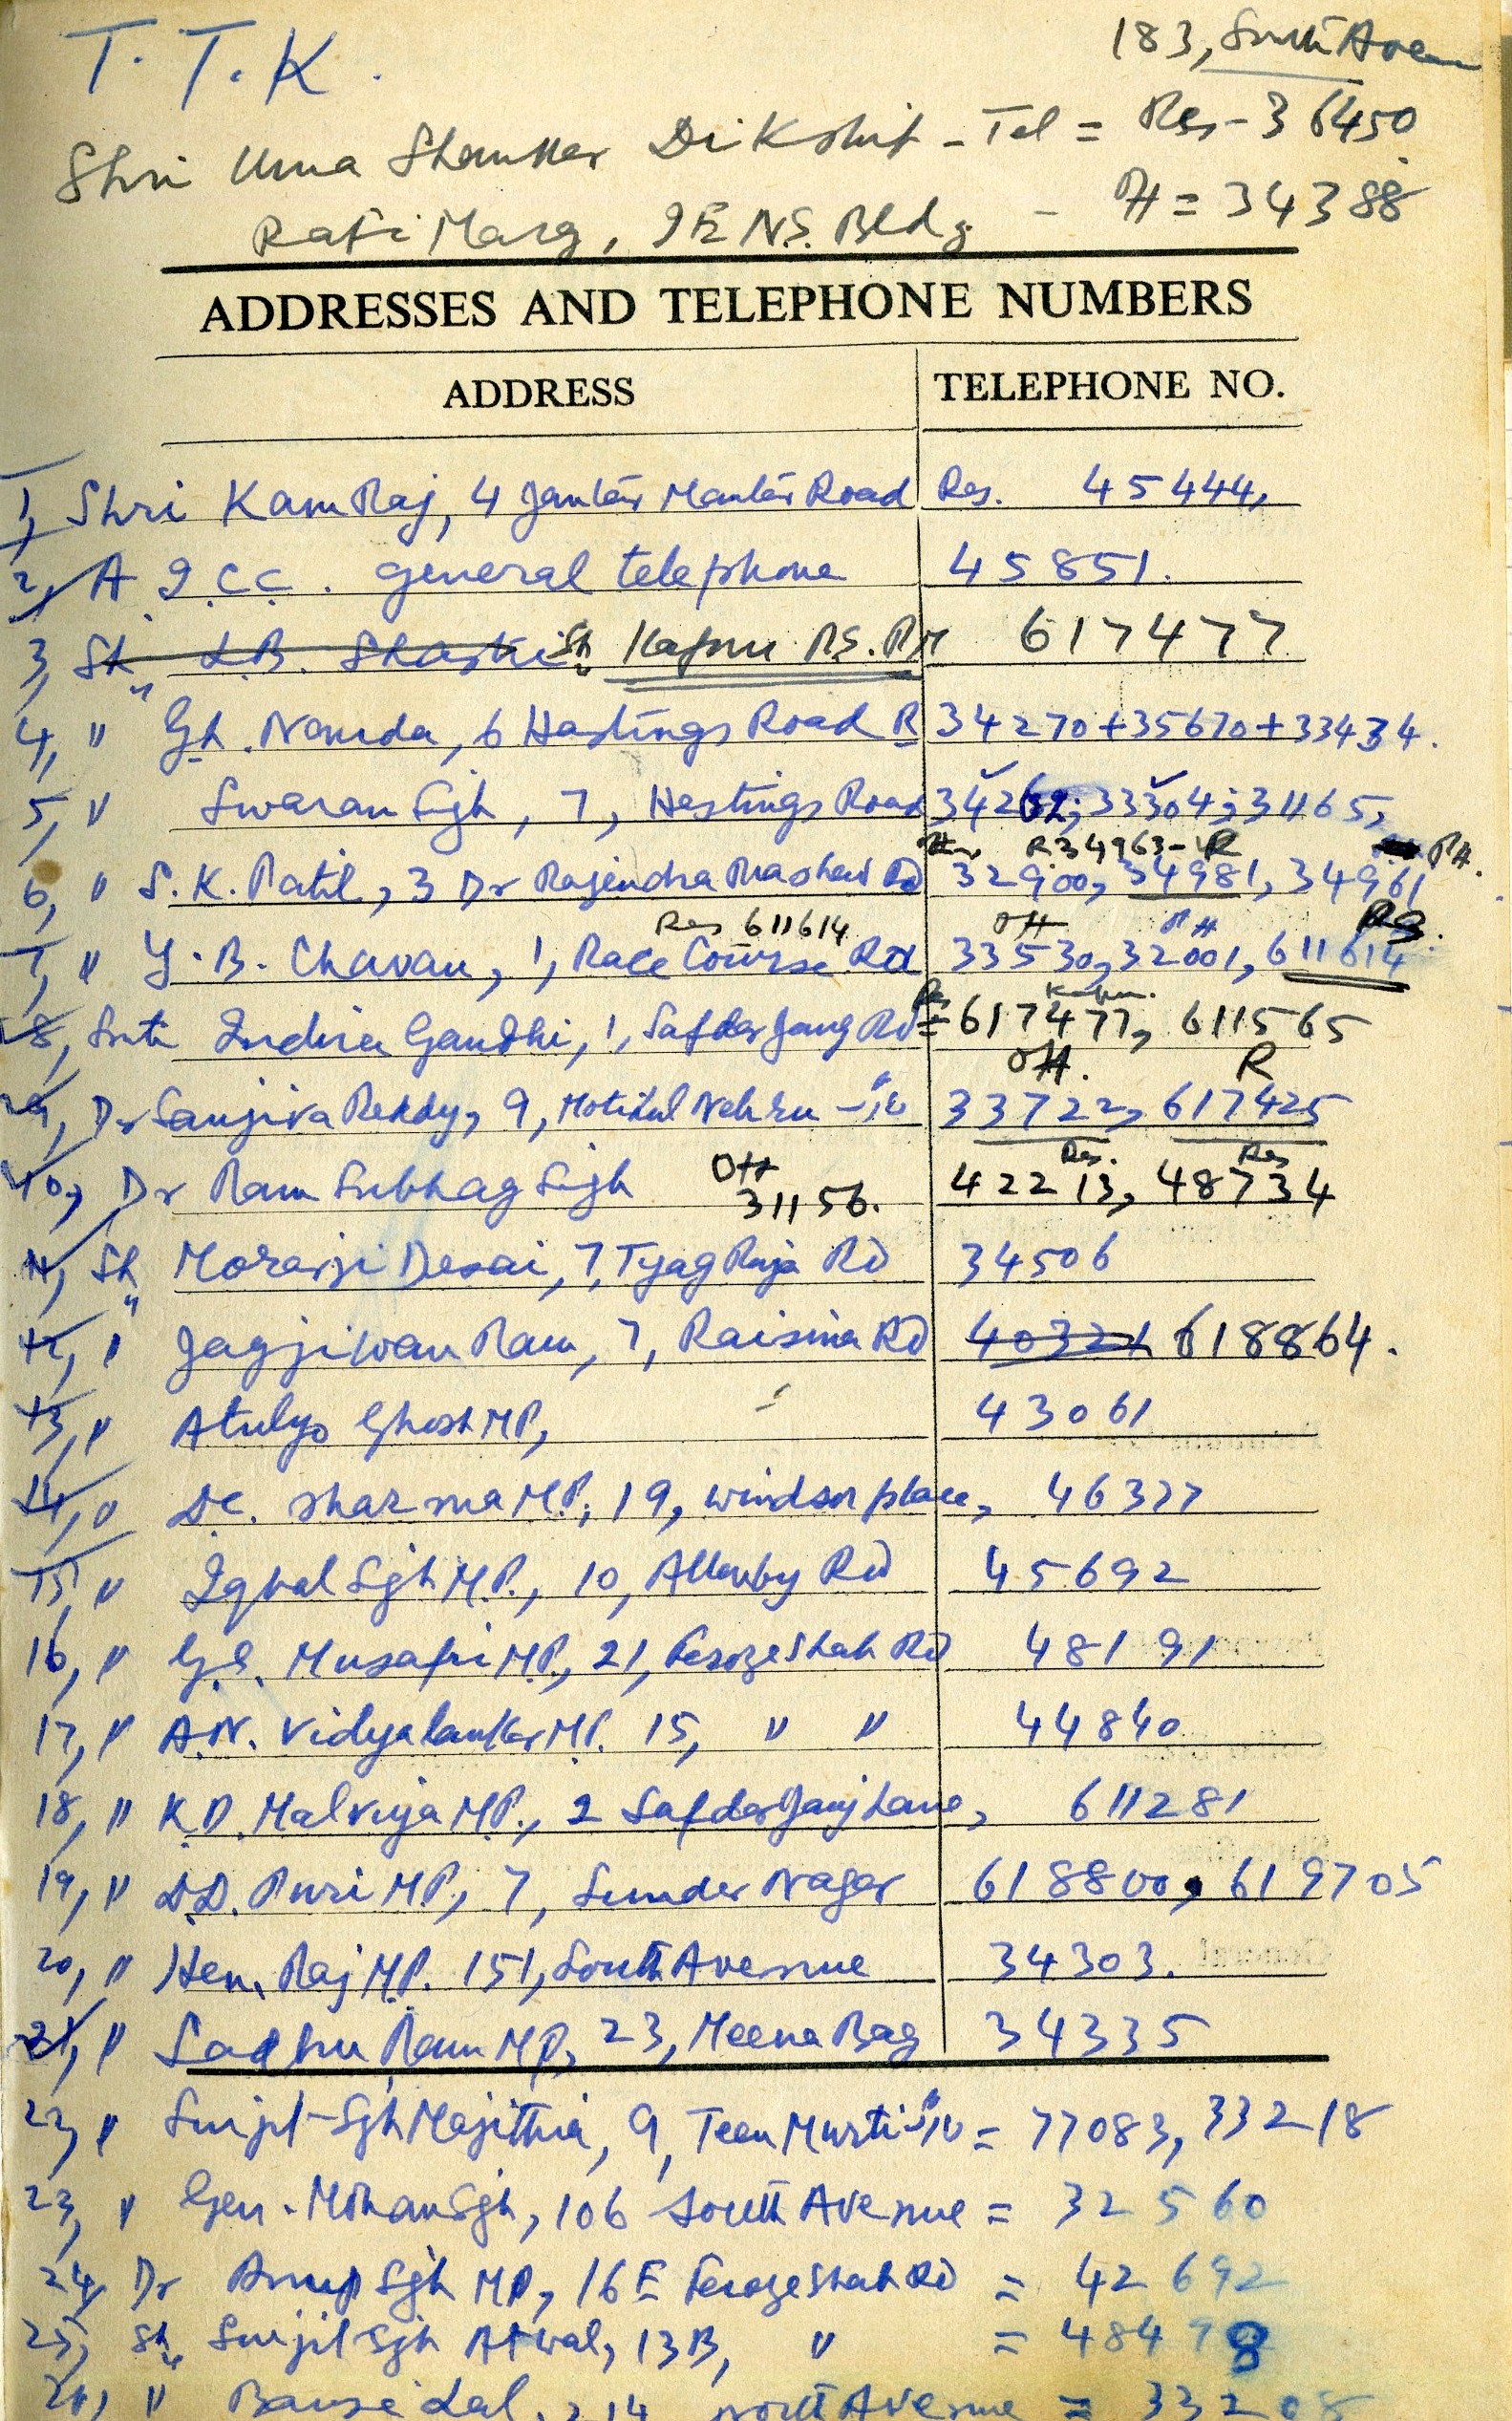 T. T. K.
183, South Aven
Shri Uma Shanker Dikshit - Tel = Res - 36450
Rafi Marg, I E N.S. Bldg - Off = 34388
ADDRESSES AND TELEPHONE NUMBERS
ADDRESS TELEPHONE NO.
1, Shri Kam Raj, 4 Jantar Mantar Road Res. 45444,
2, A I.C.C. general telephone 45851.
3, Sh. L.B. Shastri Sh. Kapur P.S. P.M 617477
4, " G.L. Nanda, 6 Hastings Road R 34270+35670+33434.
5, " Swaran Sigh, 7, Hastings Road 34262; 33304; 31165,
R 34963- R Off.
6, " S.K. Patil, 3 Dr Rajendra Prashad Rd 32900, 34981, 34961
Res 611614 Off Off Res.
7, " Y.B. Chavan, 1, Race Course Rd 33530, 32001, 611614
Res
8, Smt Indira Gandhi, 1, Safdar Jang Rd = 617477, 611565
Off. R
9, Dr Sanjiva Reddy, 9, Motilal Nehru 33722, 617425
Off Res. Res
10, Dr Ram Subhag Sigh 31156. 42213, 48734
11, Sh. Morarji Desai, 7, Tyag Raja Rd 34506
12, " Jagjiwan Ram, 7, Raisina Rd 40321 618864.
13, " Atulyo Ghosh MP, 43061
14, " D.C. Sharma M.P., 19, Windsor place, 46377
15, " Iqbal Sigh M.P., 10, Allenby Rd 45692
16, " G.S. Musafir M.P., 21, Feroze Shah Rd 48191
17, " A.N. Vidyalankar M.P. 15, " " 44840
18, " K.D. Malviya M.P., 2 Safdar Jang Lane, 611281
19, " D.D. Puri M.P., 7, Sunder Nagar 618800, 619705
20, " Hem Raj M.P. 151, South Avenue 34303.
21, " Sadhu Ram M.P., 23, Meena Bag 34335
22, " Surjit Sgh Majithia, 9, Teen Murti = 77083, 33218
23, " Gen. Mohan Sgh, 106 South Avenue = 32560
24, Dr Anup Sgh MP, 16 E Feroze Shah Rd = 42692
25, Sh. Surjit Sgh Atwal, 13 B, " = 48498
" Bansi Lal, 214 North Avenue = 33208